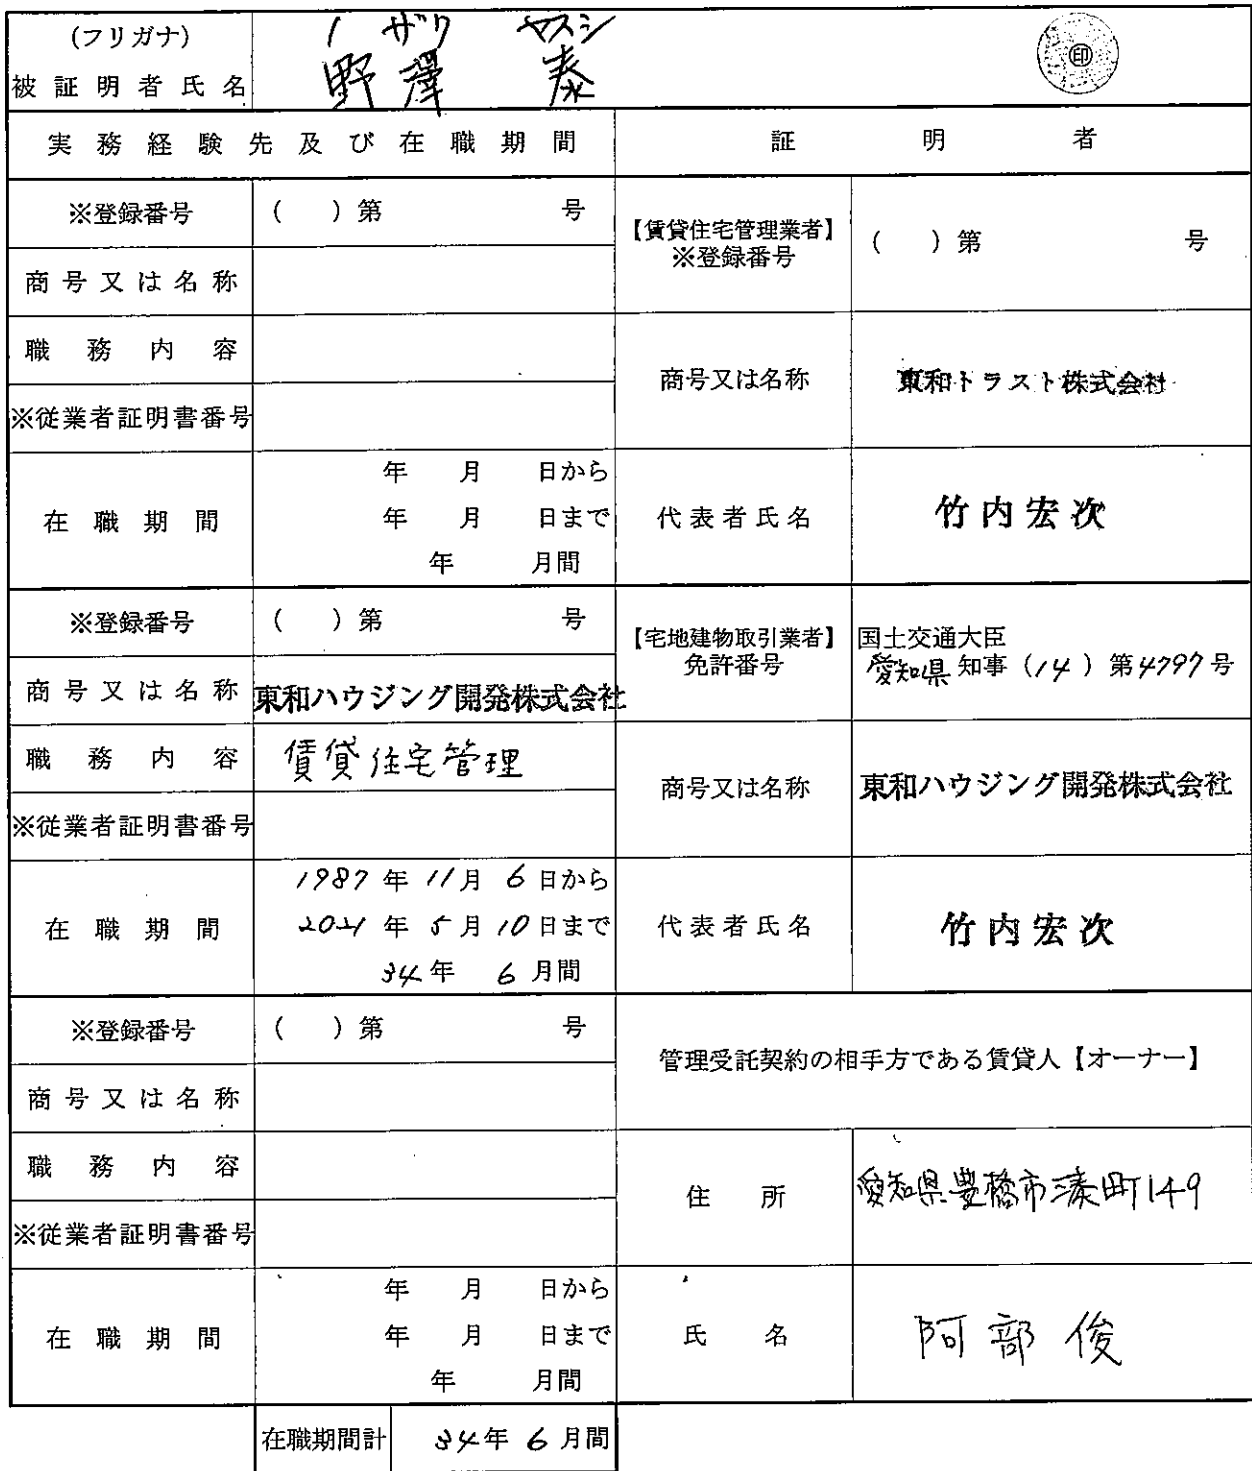 (フリガナ) ノ ザワ ヤスシ
被証明者氏名 野澤 泰 印
実務経験先及び在職期間 証明者
※登録番号 ( )第 号 【賃貸住宅管理業者】 ※登録番号 ( )第 号
商号又は名称
職務内容 商号又は名称 東和トラスト株式会社
※従業者証明書番号
在職期間 年 月 日から
年 月 日まで 代表者氏名 竹内宏次
年 月間
※登録番号 ( )第 号 【宅地建物取引業者】 免許番号 国土交通大臣
愛知県 知事 (14) 第4797号
商号又は名称 東和ハウジング開発株式会社
職務内容 賃貸住宅管理 商号又は名称 東和ハウジング開発株式会社
※従業者証明書番号
在職期間 1987年11月6日から
2021年5月10日まで 代表者氏名 竹内宏次
34年 6月間
※登録番号 ( )第 号 管理受託契約の相手方である賃貸人【オーナー】
商号又は名称
職務内容 住所 愛知県豊橋市湊町149
※従業者証明書番号
在職期間 年 月 日から
年 月 日まで 氏名 阿部 俊
年 月間
在職期間計 34年 6月間